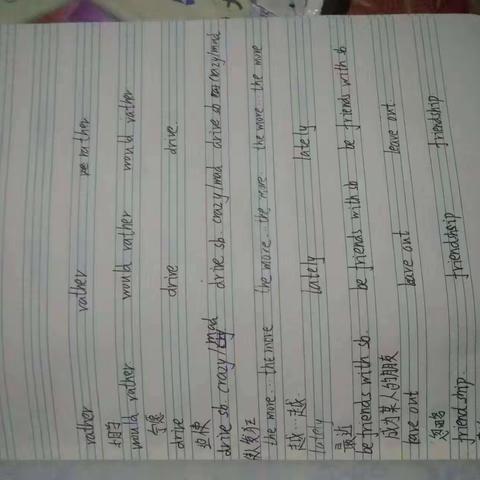 rather rather rather
相当
would rather would rather would rather
宁愿
drive drive drive.
迫使
drive sb. crazy/mad drive sb. crazy/mad drive sb crazy/mad
使人发狂
the more... the more the more... the more the more the more
越…越
lately lately lately
最近
be friends with sb. be friends with sb be friends with sb
成为某人的朋友
leave out leave out leave out
忽略
friendship. friendship friendship